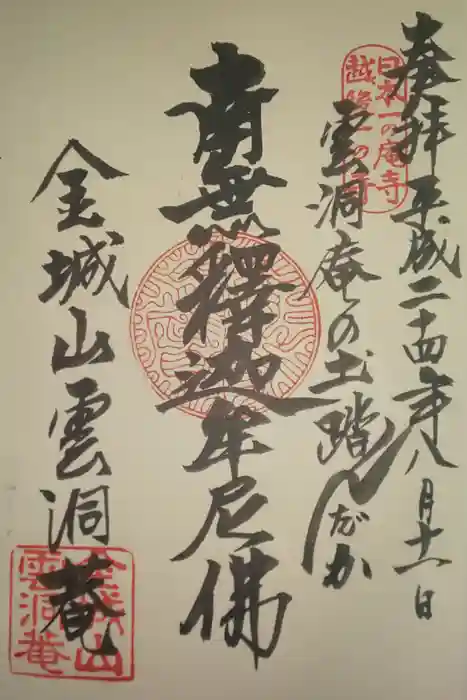 奉拝 平成二十四年八月十一日
日本一の庵寺
越後一の寺
雲洞庵の土踏んだか
南無釋迦牟尼佛
金城山雲洞菴
金城山
雲洞菴